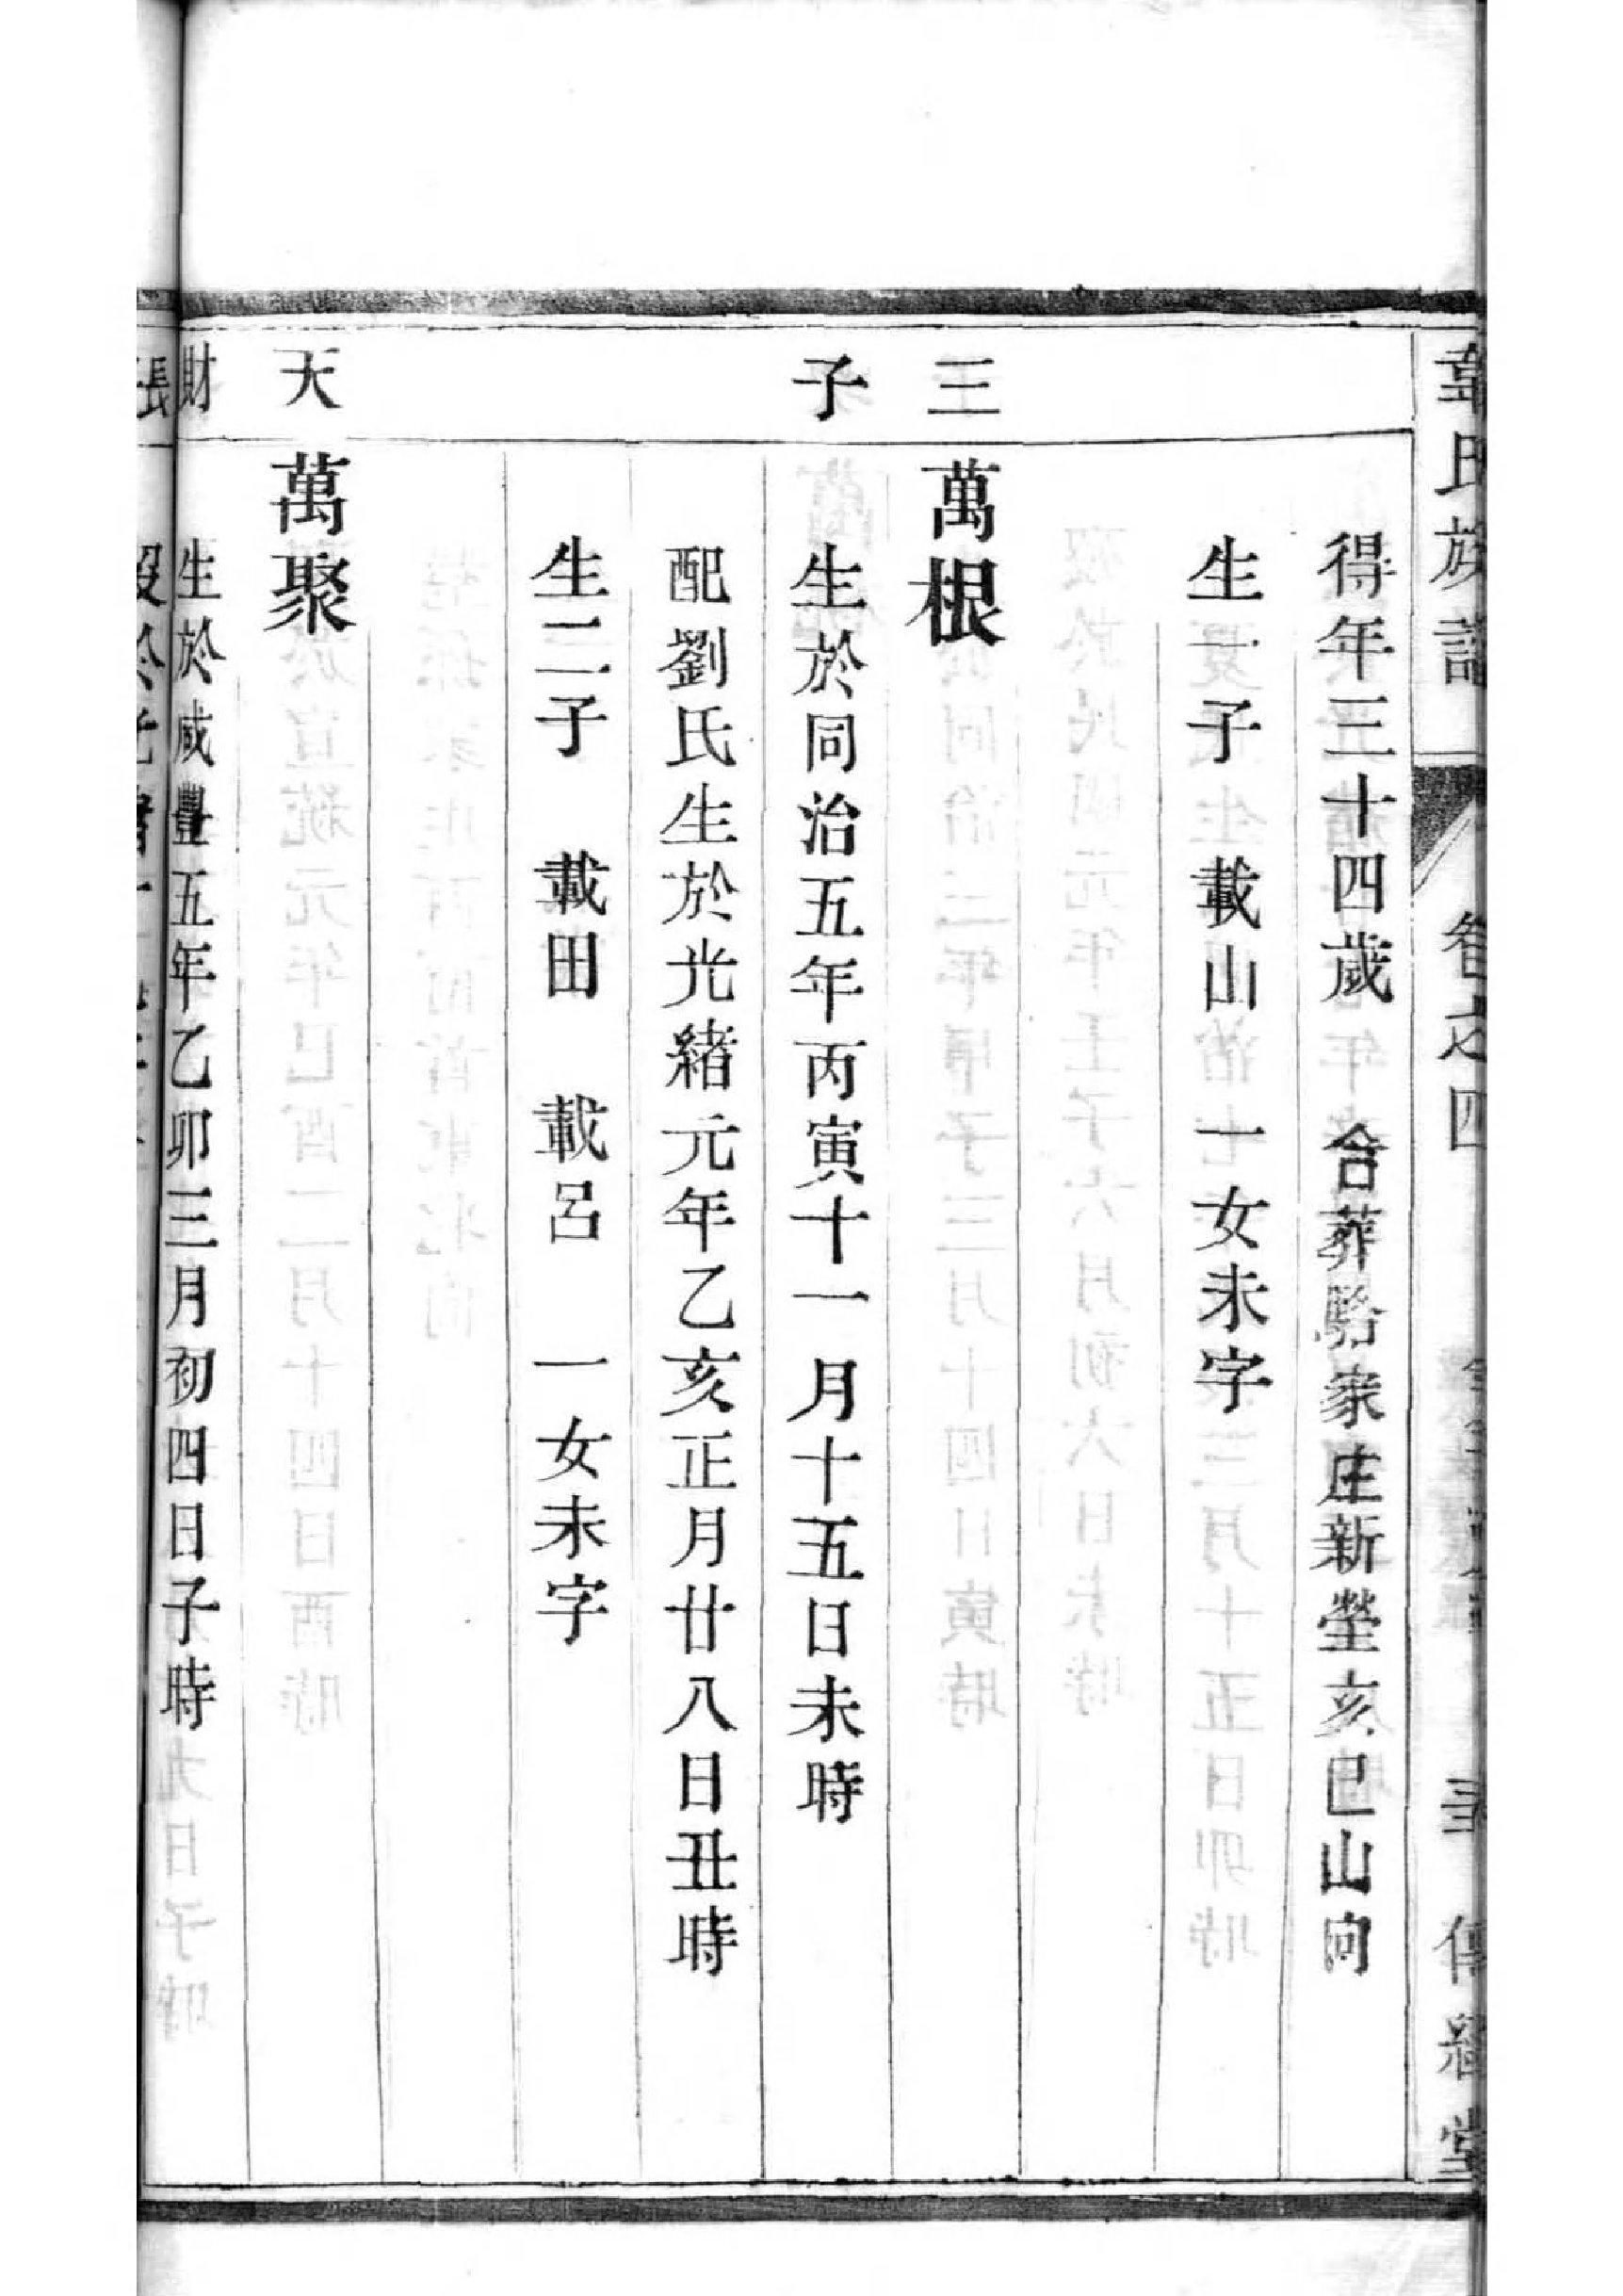 韋氏族譜 卷之四 傳經堂
得年三十四歲 合葬駱家庄新塋亥巳山向
生一子 載山 一女未字
三 萬根
子 生於同治五年丙寅十一月十五日未時
配劉氏生於光緒元年乙亥正月廿八日丑時
生二子 載田 載呂 一女未字
天 萬聚
財 生於咸豐五年乙卯三月初四日子時
張 歿於光緒